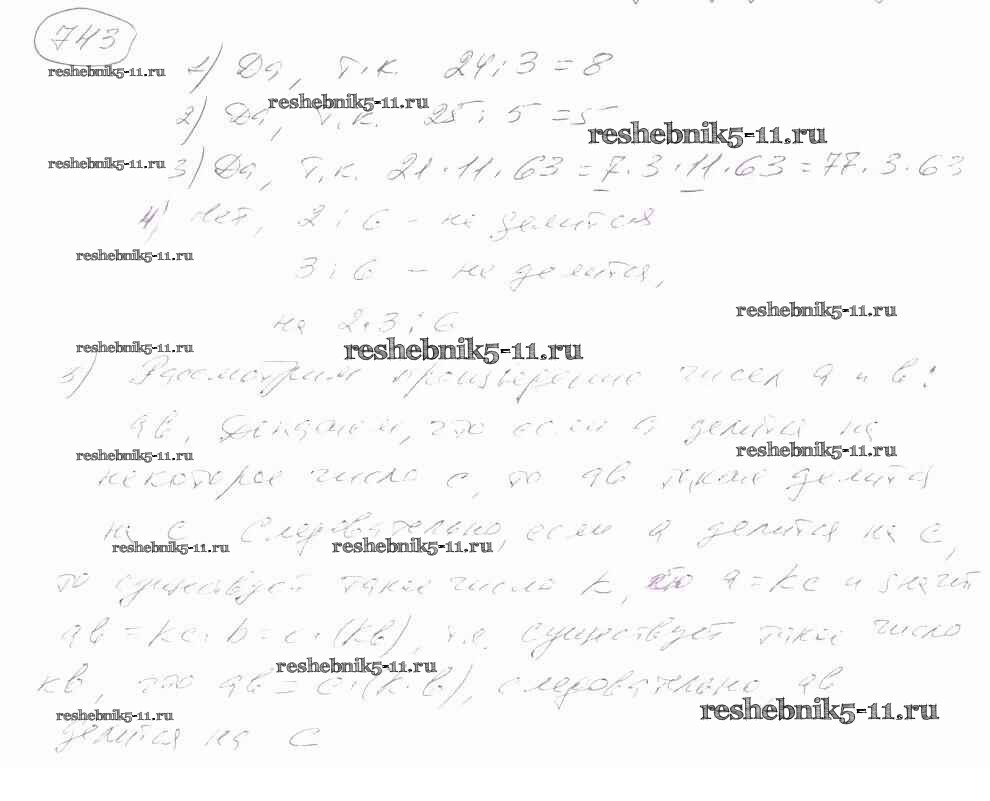 743
reshebnik5-11.ru
1) Да, т.к. 24 : 3 = 8
reshebnik5-11.ru
2) Да, т.к. 25 : 5 = 5
reshebnik5-11.ru
reshebnik5-11.ru
3) Да, т.к. 21 · 11 · 63 = 7 · 3 · 11 · 63 = 77 · 3 · 63
4) Нет, 2 : 6 - не делится
reshebnik5-11.ru
3 : 6 - не делится,
reshebnik5-11.ru
2·3 : 6
reshebnik5-11.ru
reshebnik5-11.ru
5) Рассмотрим произведение чисел a и b:
ab. Докажем, что если a делится на
reshebnik5-11.ru
reshebnik5-11.ru
некоторое число c, то ab также делится
на c Следовательно, если a делится на c,
reshebnik5-11.ru
reshebnik5-11.ru
то существует такое число k, что a = kc и значит
ab = kc · b = c · (kb), т.е. существует такое число
reshebnik5-11.ru
kb, что ab = c · (k · b), следовательно ab
reshebnik5-11.ru
reshebnik5-11.ru
делится на c